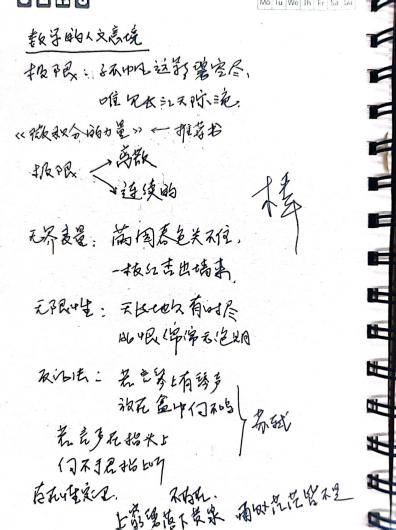 Mo Tu We Th Fr Sa Su
数学的人文意境
极限：孤帆远影碧空尽，
唯见长江天际流。
《微积分的力量》← 推荐书
极限
离散
连续的
棒
无界变量：满园春色关不住，
一枝红杏出墙来，
无限性：天长地久有时尽
此恨绵绵无绝期
反证法：若言琴上有琴声
放在盒中何不鸣
若言声在指头上
何不于君指上听
苏轼
存在性定理、不存在
上穷碧落下黄泉 两处茫茫皆不见